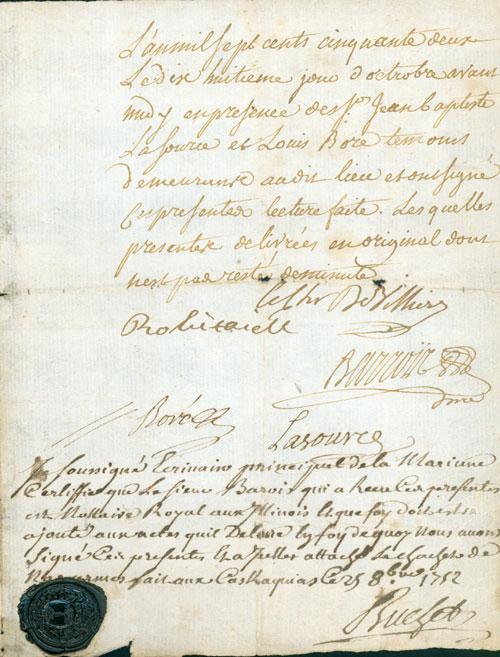 L'an mil sept cents cinquante deux
Le dix huitieme jour d'octobre avant
midy en presence des Srs Jean baptiste
Lasource et Louis Boré temoins
demeurants audit lieu et ont signé
Ces presentes lecture faite. Les quelles
presentes delivrées en original dont
n'est pas resté de minute
le Chr De Villiers
Robietaiell
Barrois
Boré
Lasource
Je soussigné Ecrivain principal de la Marinne
Certiffie que Le Sieur Barois qui a Receu Ces presentes
est Nottaire Royal aux Illinois Et que foy doit est
ajouté aux actes quil Delivre En foy de quoy Nous avons
signé Ces presentes Et a Icelles attaché Le Cachet de
Nos armes fait aux Caskaquias Le 25 8bre 1752
Buchet